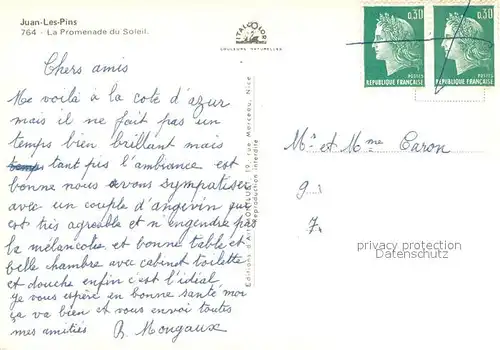 Juan-Les-Pins
764 - La Promenade du Soleil.
ITALCOLOR
COULEURS NATURELLES
0,30
POSTES
REPUBLIQUE FRANÇAISE
0,30
POSTES
REPUBLIQUE FRANÇAISE
Chers amis
Me voilà à la cote d'azur
mais il ne fait pas un
temps bien brillant mais
temps tant pis l'ambiance est
bonne nous avons sympatiser
avec un couple d'angevin qui
est très agreable et n'engendre pas
la mélancolie et bonne table et
belle chambre avec cabinet toilette
et douche enfin c'est l'idéal
je vous espère en bonne santé moi
ça va bien et vous envoi toutes
mes amitiés B. Mongaux
19, rue Marceau, Nice
Reproduction interdite
Mr et Mme Caron
privacy protection
Datenschutz